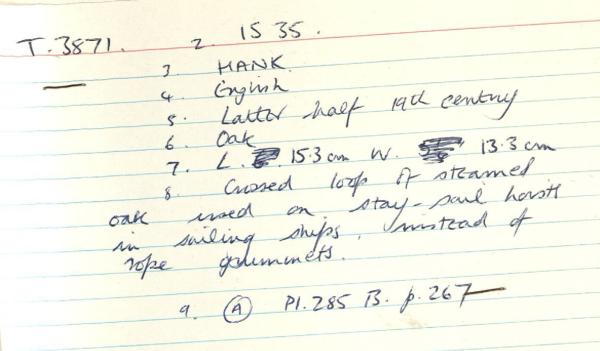 T.3871. 2. IS 35.
3 HANK.
4. English
5. Latter half 19th century
6. Oak
7. L. 15.3 cm W. 13.3 cm
8. Crossed loop of steamed
oak used on stay-sail hoists
in sailing ships, instead of
rope grummets.
9. A Pl. 285 B. p. 267